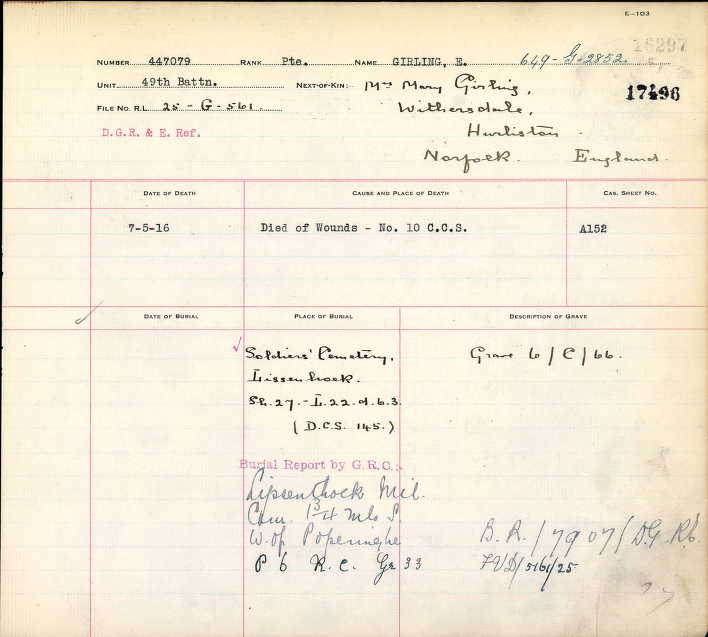 E-103
16297
NUMBER 447079 RANK Pte. NAME GIRLING, E. 649-G-2852
UNIT 49th Battn. NEXT-OF-KIN: Mrs Mary Girling,
17496
FILE NO. R.L. 25 - G - 561. Withersdale,
D.G.R. & E. Ref. Hurliston
Norfolk. England.
DATE OF DEATH CAUSE AND PLACE OF DEATH CAS. SHEET NO.
7-5-16 Died of Wounds - No. 10 C.C.S. A152
DATE OF BURIAL PLACE OF BURIAL DESCRIPTION OF GRAVE
Soldiers' Cemetery, Grave 6/C/66.
Lissenhoek.
Sh.27.-L.22.d.6.3.
(D.C.S. 145.)
Burial Report by G.R.C.:
Lipsenthock Mil.
Cem. 1¾ Mls S.
W. of Poperinghe B.R./7907/D.G.R.6.
P 6 R.C. Gr 33 /5161/25